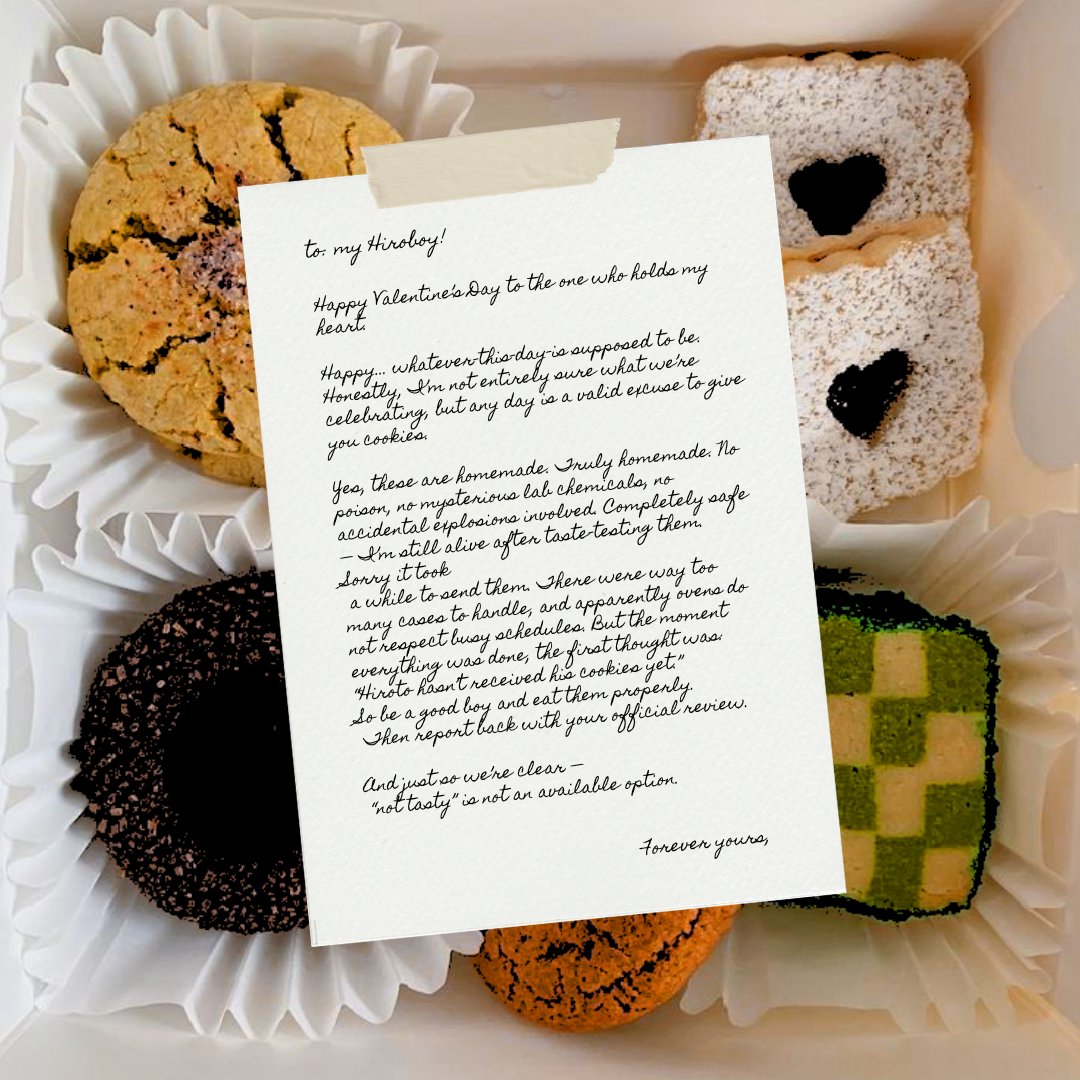 to: my Hiroboy!
Happy Valentine's Day to the one who holds my
heart.
Happy... whatever-this-day-is supposed to be.
Honestly, I'm not entirely sure what we're
celebrating, but any day is a valid excuse to give
you cookies.
Yes, these are homemade. Truly homemade. No
poison, no mysterious lab chemicals, no
accidental explosions involved. Completely safe
— I'm still alive after taste-testing them.
Sorry it took
a while to send them. There were way too
many cases to handle, and apparently ovens do
not respect busy schedules. But the moment
everything was done, the first thought was:
"Hiroto hasn't received his cookies yet."
So be a good boy and eat them properly.
Then report back with your official review.
And just so we're clear —
"not tasty" is not an available option.
Forever yours,